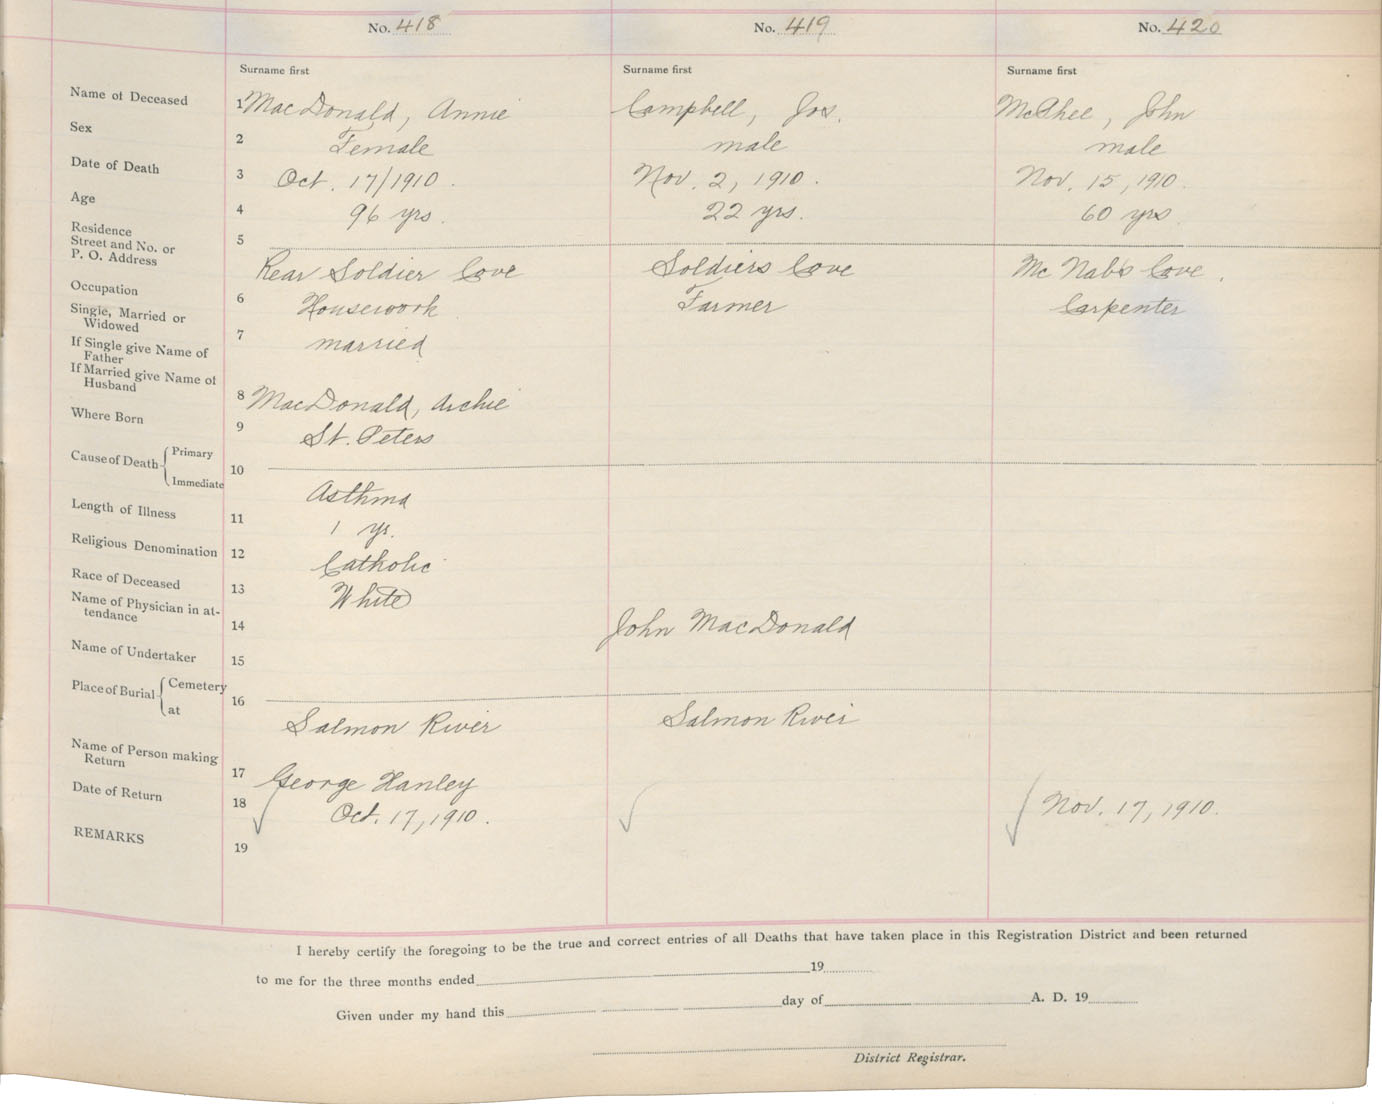 No. 418 No. 419 No. 420
Surname first Surname first Surname first
Name of Deceased 1 MacDonald, Annie Campbell, Jos. McPhee, John
Sex 2 Female male male
Date of Death 3 Oct. 17/1910. Nov. 2, 1910. Nov. 15, 1910.
Age 4 96 yrs. 22 yrs. 60 yrs.
Residence
Street and No. or 5
P. O. Address Rear Soldier Cove Soldiers Cove Mc Nab's Cove.
Occupation 6 Housework Farmer Carpenter
Single, Married or
Widowed 7 married
If Single give Name of
Father
If Married give Name of
Husband 8 MacDonald, Archie
Where Born 9 St. Peters
Cause of Death Primary
10
Immediate Asthma
Length of Illness 11 1 yr.
Religious Denomination 12 Catholic
Race of Deceased 13 White
Name of Physician in at-
tendance 14 John MacDonald
Name of Undertaker 15
Place of Burial Cemetery
16
at Salmon River Salmon River
Name of Person making
Return 17 George Hanley
Date of Return 18 Oct. 17, 1910. Nov. 17, 1910.
REMARKS 19
I hereby certify the foregoing to be the true and correct entries of all Deaths that have taken place in this Registration District and been returned
to me for the three months ended 19
Given under my hand this day of A. D. 19
District Registrar.